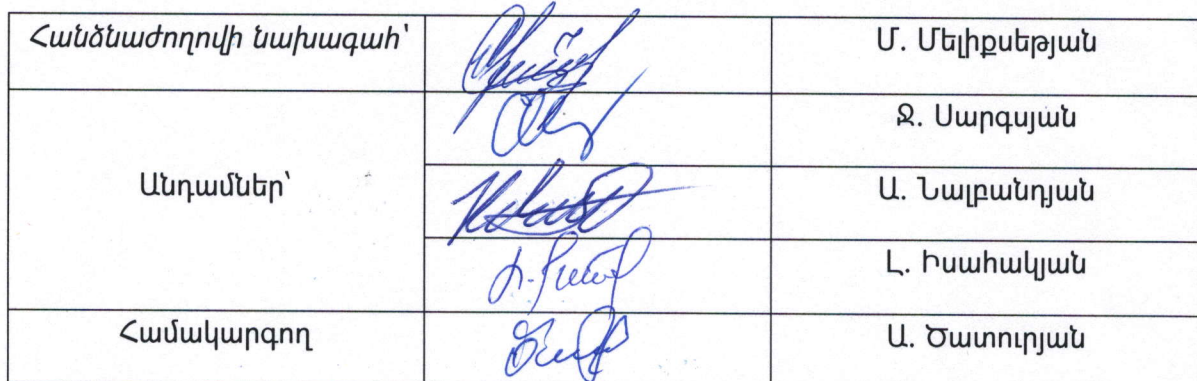 Հանձնաժողովի նախագահ՝
Մ. Մելիքսեթյան
Ջ. Սարգսյան
Անդամներ՝
Ա. Նալբանդյան
Լ. Իսահակյան
Համակարգող
Ա. Ծատուրյան